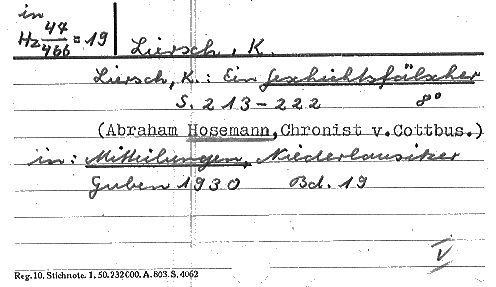 in
Hz 44/466 = 19
Liersch, K.
Liersch, K.: Ein Geschichtsfälscher
S. 213-222 8°
(Abraham Hosemann, Chronist v. Cottbus.)
in: Mitteilungen, Niederlausitzer
Guben 1930 Bd. 19
V
Reg. 10. Stichnote. 1, 50. 232000. A. 803. S. 4062